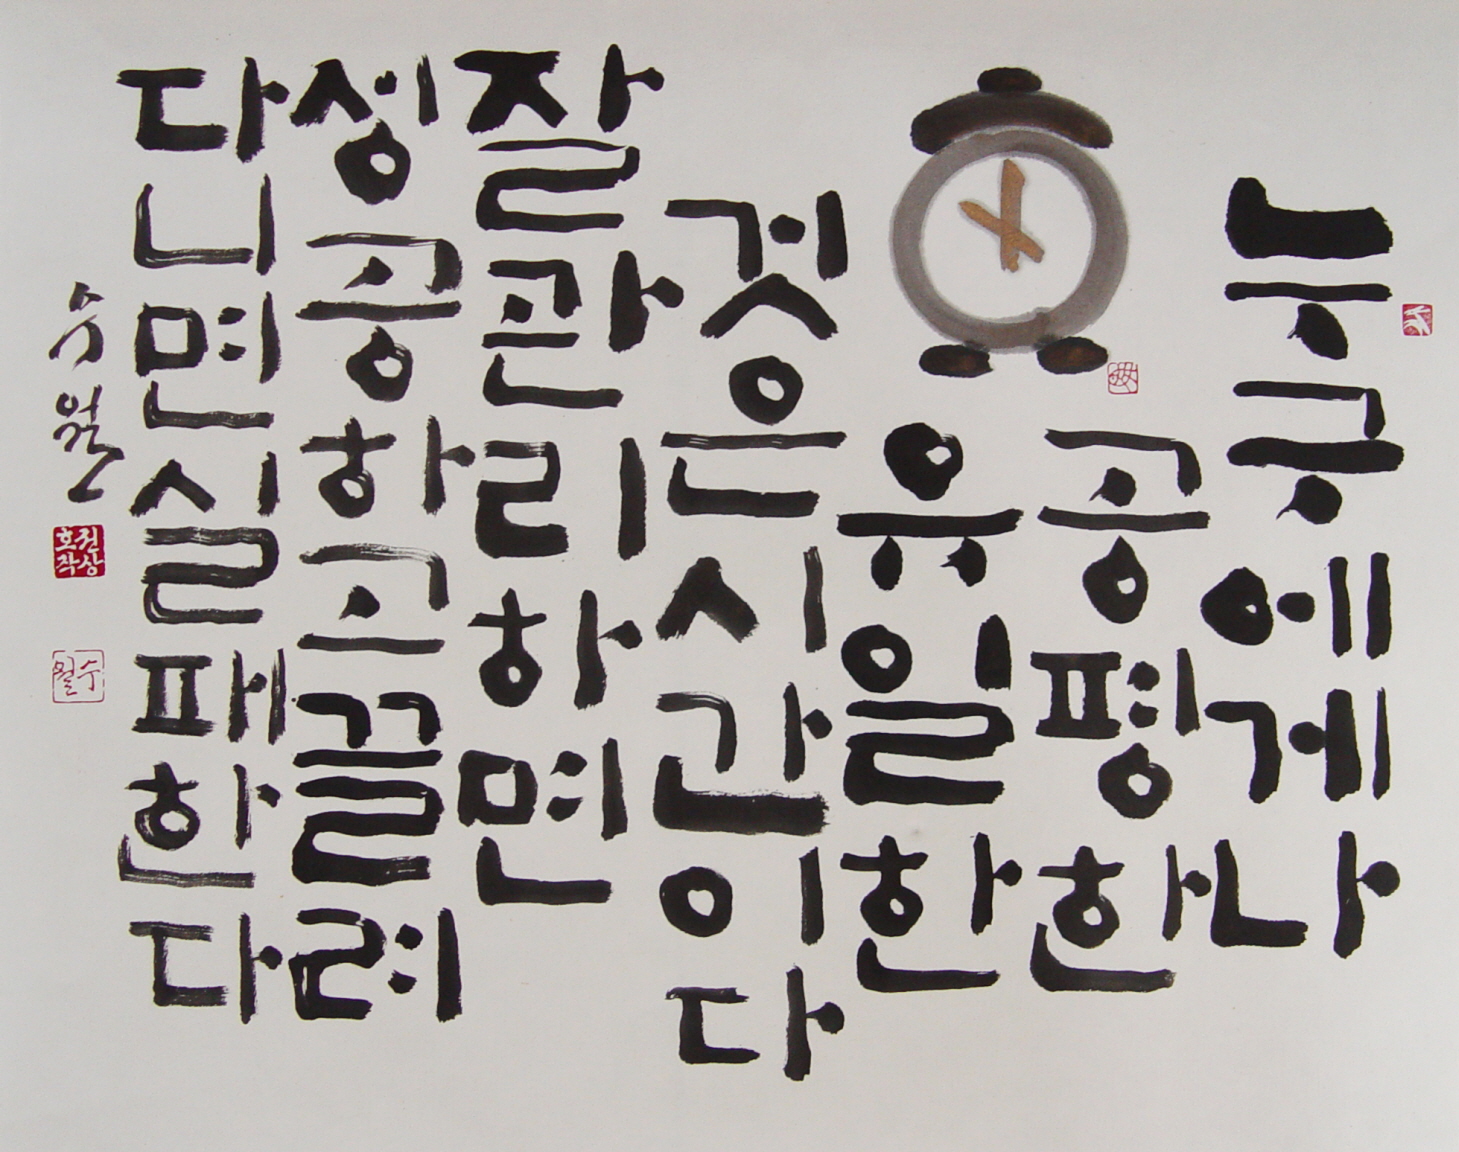 누구에게나
공평한
유일한
것은시간이다
잘관리하면
성공하고끌려
다니면실패한다
수월
수월